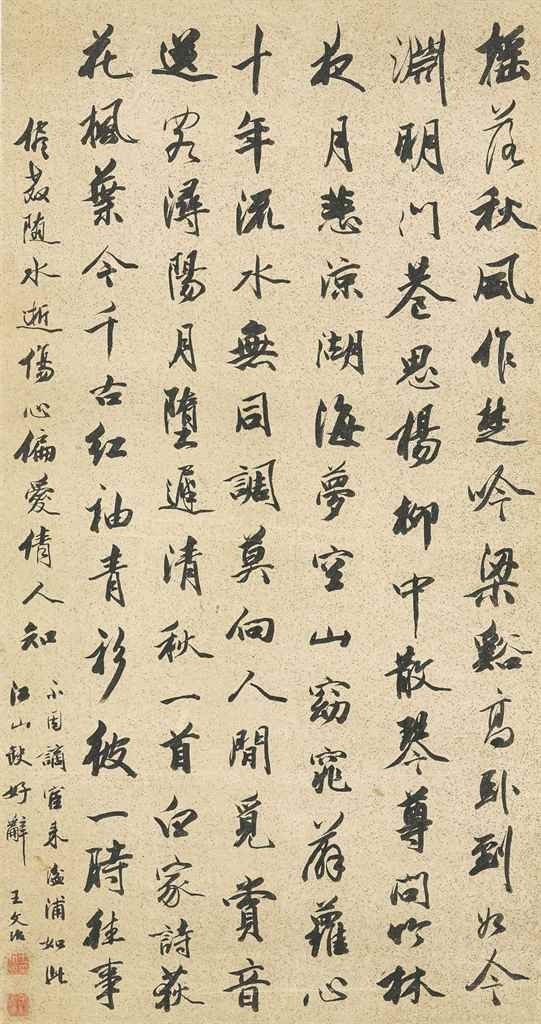 搖落秋風作楚吟梁谿高臥到如今
淵明門巷思楊柳中散琴尊問竹林
夜月悲涼湖海夢空山窈窕薜蘿心
十年流水無同調莫向人間覓賞音
送客潯陽月墮遲清秋一首白家詩荻
花楓葉今千古紅袖青衫彼一時往事
儘教随水逝傷心偏愛倩人知
不因謫宦來湓浦如此
江山缺好辭 王文治